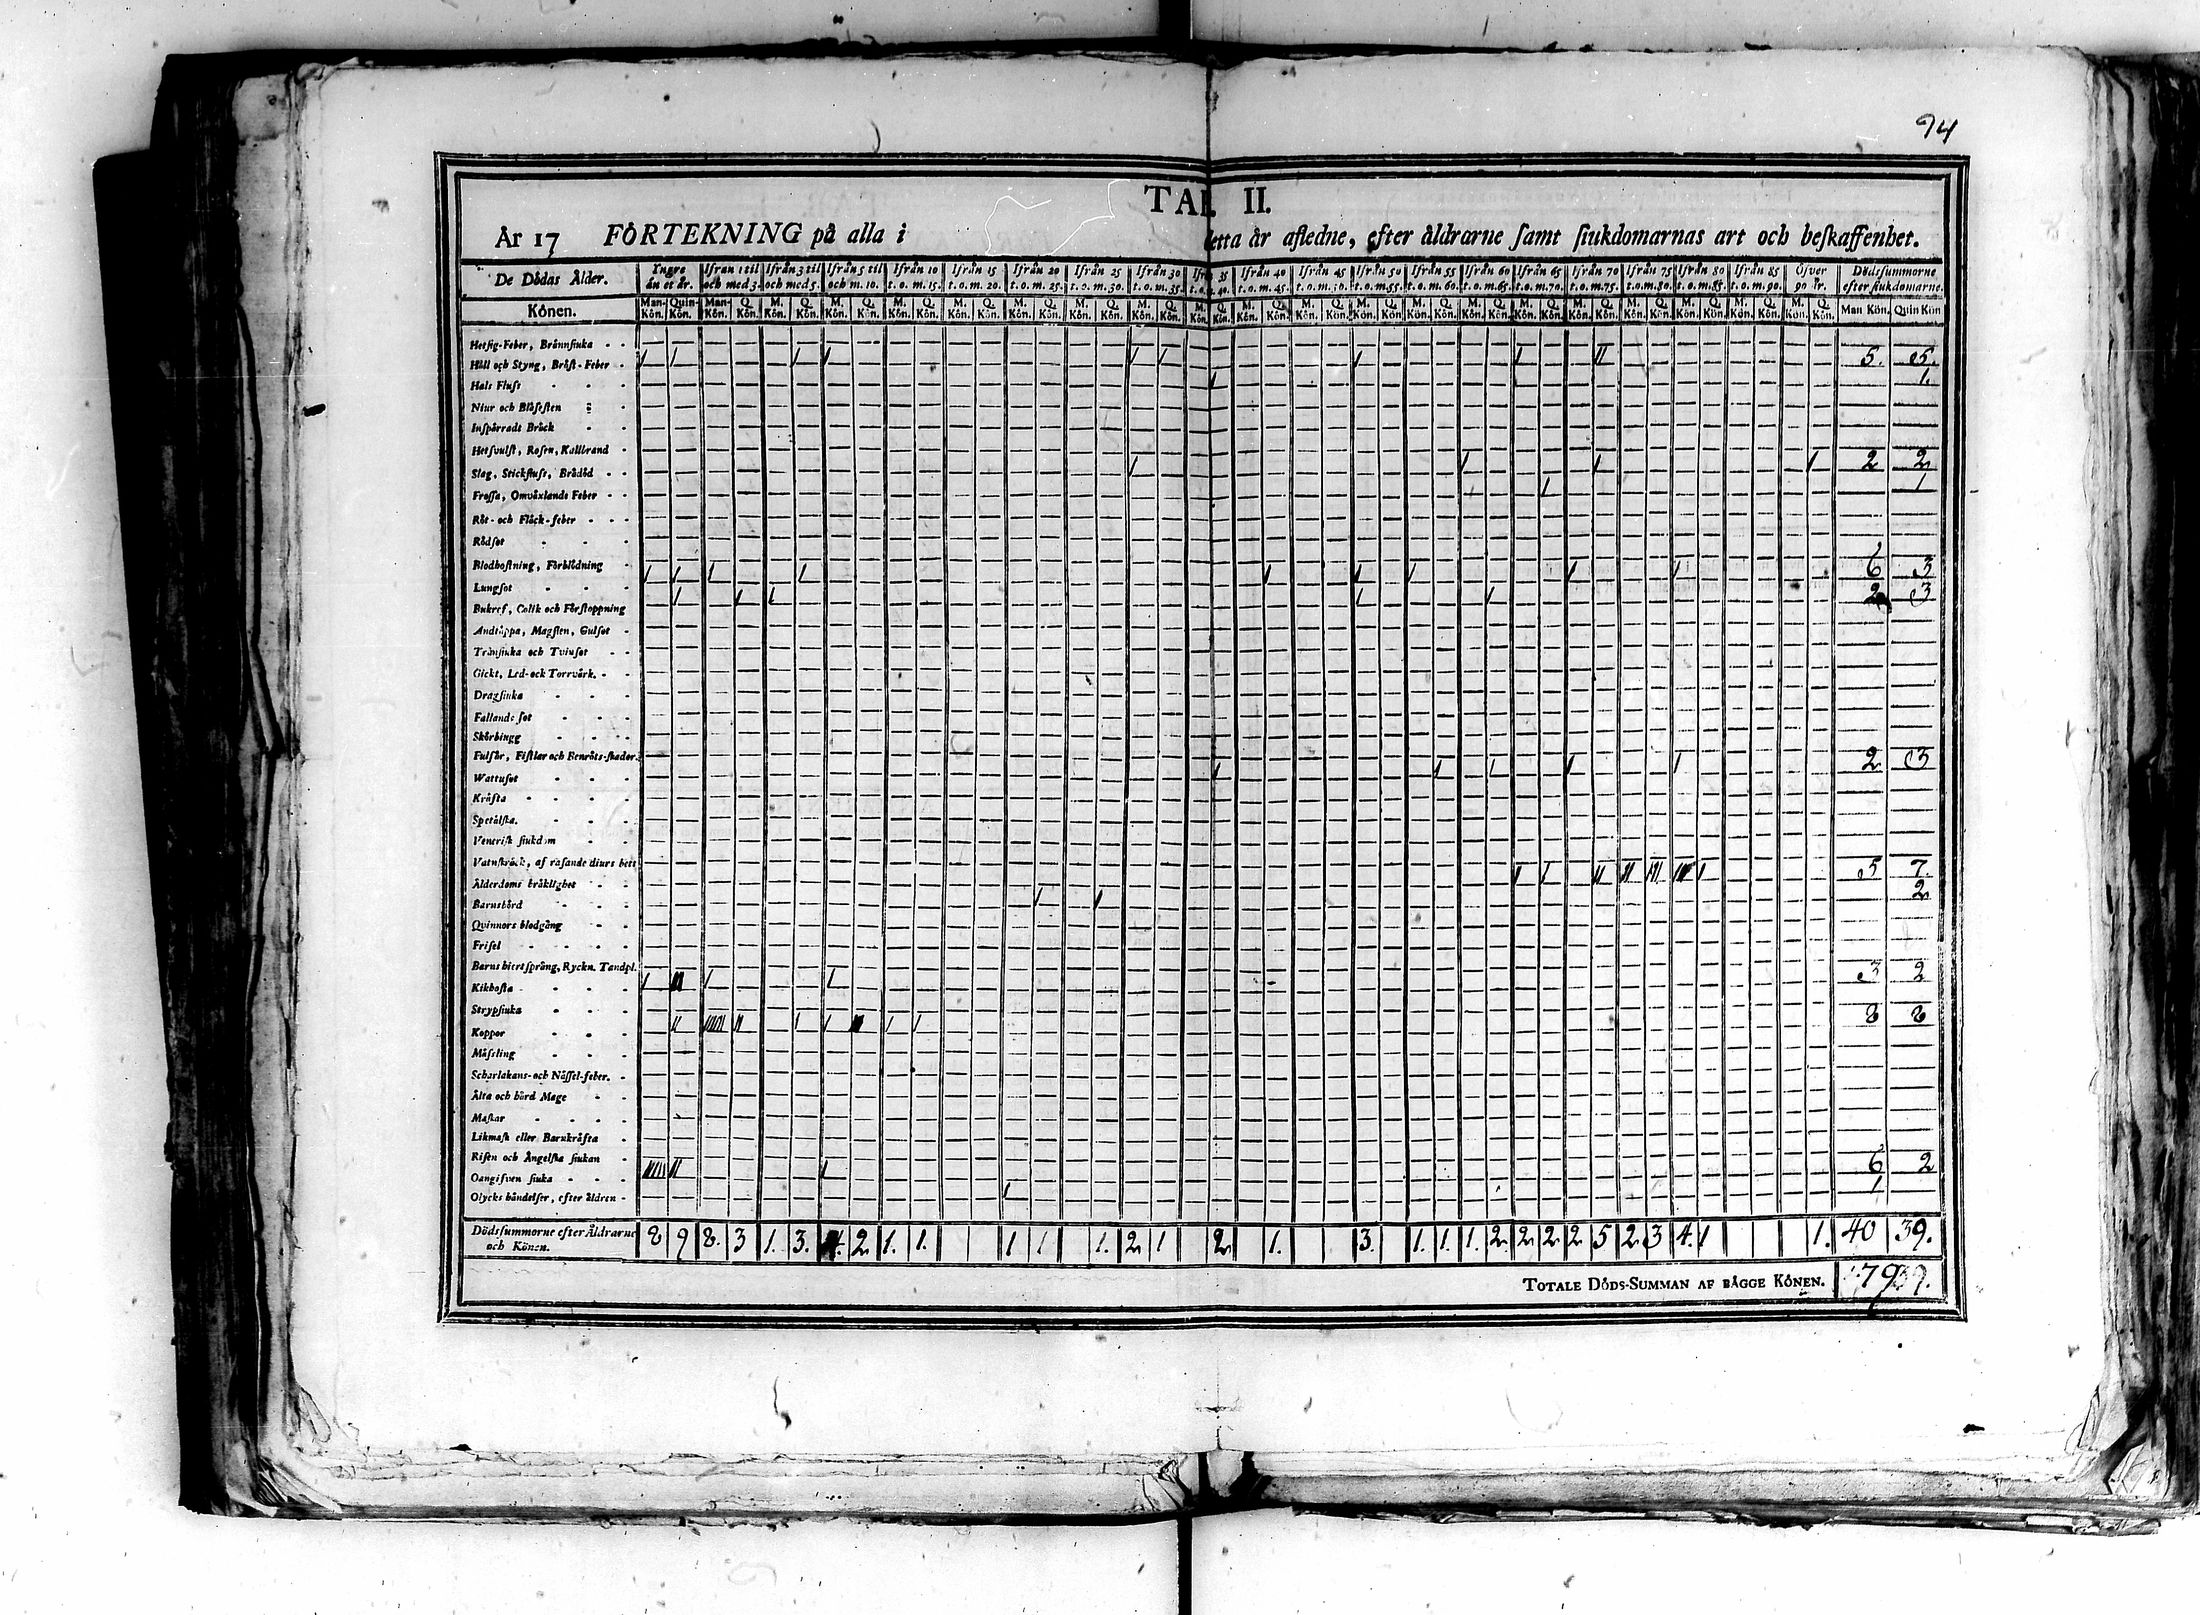 94
TAB. II.
År 17 FÖRTEKNING på alla i detta år afledne, efter åldrarne samt siukdomarnas art och beskaffenhet.
De Dödas Ålder. Yngre än et år. Ifrån 1 til och med 3. Ifrån 3 til och med 5. Ifrån 5 til och m. 10. Ifrån 10 t. o. m. 15. Ifrån 15 t. o. m. 20. Ifrån 20 t. o. m. 25. Ifrån 25 t. o. m. 30. Ifrån 30 t. o. m. 35. Ifrån 35 t. o. m. 40. Ifrån 40 t. o. m. 45. Ifrån 45 t. o. m. 50. Ifrån 50 t. o. m. 55. Ifrån 55 t. o. m. 60. Ifrån 60 t. o. m. 65. Ifrån 65 t. o. m. 70. Ifrån 70 t. o. m. 75. Ifrån 75 t. o. m. 80. Ifrån 80 t. o. m. 85. Ifrån 85 t. o. m. 90. Öfver 90 år. Dödssummorne efter siukdomarne.
Könen. Man-Kön. Quin-Kön. Man-Kön. Q. Kön. M. Kön. Q. Kön. M. Kön. Q. Kön. M. Kön. Q. Kön. M. Kön. Q. Kön. M. Kön. Q. Kön. M. Kön. Q. Kön. M. Kön. Q. Kön. M. Kön. Q. Kön. M. Kön. Q. Kön. M. Kön. Q. Kön. M. Kön. Q. Kön. M. Kön. Q. Kön. M. Kön. Q. Kön. M. Kön. Q. Kön. M. Kön. Q. Kön. M. Kön. Q. Kön. M. Kön. Q. Kön. M. Kön. Q. Kön. M. Kön. Q. Kön. Man Kön. Quin Kön
Hetsig-Feber, Brännsiuka
Håll och Styng, Bröst-Feber 5. 5.
Hals Fluss 1.
Niur och Blåsesten
Inspärradt Bråck
Hetsvulst, Rosen, Kallbrand
Slag, Stickfluss, Brådöd 2 2
Frossa, Omväxlande Feber 1
Röt- och Fläck-feber
Rödsot
Blodhostning, Förblödning
Lungsot 6 3
Bukref, Colik och Förstoppning 2 3
Andtäppa, Magsten, Gulsot
Trånsiuka och Tvinsot
Gickt, Led- ock Torrvärk.
Dragsiuka
Fallande sot
Skörbiugg
Fulsår, Fistlar och Benröts-skador.
Wattusot 2 3
Kräfta
Spetälska.
Venerisk siukdom
Vatnskräck, af rasande diurs bett
Ålderdoms bräklighet 5 7.
Barnsbörd 2
Qvinnors blodgång
Frisel
Barns hiertsprång, Ryckn. Tandpl.
Kikhosta 3 2
Strypsiuka
Koppor 8 8
Mässling
Scharlakans- och Nässel-feber.
Älta och hård Mage
Maskar
Likmask eller Barnkräfta
Risen och Ängelska siukan
Oangifven siuka 6 2
Olycks händelser, efter åldren 1
Dödssummorne efter Åldrarne och Könen. 8 9 8. 3 1. 3. 4. 2 1. 1. 1 1 1. 2 1 2 1. 3. 1. 1. 1. 2. 2 2 2 5 2 3 4. 1 1. 40 39.
TOTALE DÖDS-SUMMAN AF BÄGGE KÖNEN. 79